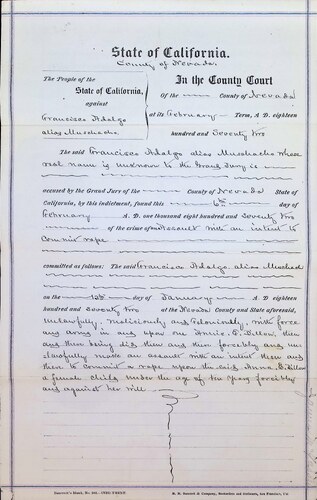 State of California.
County of Nevada
The People of the
State of California,
against
Francisco Hidalgo
alias Muchacho
In the County Court
Of the County of Nevada
at its February Term, A. D. eighteen
hundred and Seventy two
The said Francisco Hidalgo alias Muchacho whose
real name is unknown to the Grand Jury is
accused by the Grand Jury of the County of Nevada State of
California, by this indictment, found this 6th day of
February A. D. one thousand eight hundred and Seventy two
of the crime of an Assault with an intent to
Commit rape
committed as follows: The said Francisco Hidalgo alias
on the day of January A. D. eighteen
hundred and Seventy two at the Nevada County and State aforesaid,
unlawfully, maliciously and feloniously, with force
and arms in and upon one Annie then
and there being did then and there forcibly and un
lawfully make an assault with an intent then and
there to commit a rape upon the said Anna
a female child under the age of ten years forcibly
and against her will